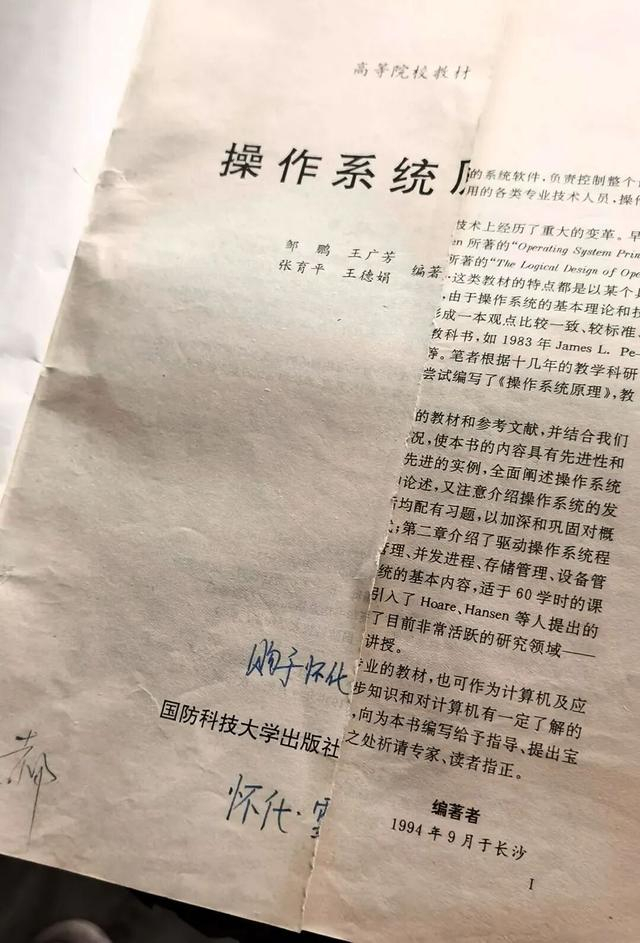 高等院校教材
操作系统
邹 鹏 王广芳
张育平 王德娟 编著
国防科技大学出版社
怀化·
的系统软件，负责控制整个
用的各类专业技术人员，操作
技术上经历了重大的变革。早
所著的“Operating System Prin
所著的“The Logical Design of Ope
，这类教材的特点都是以某个具
，由于操作系统的基本理论和技
形成一本观点比较一致、较标准、
教科书，如 1983 年 James L. Pe-
等。笔者根据十几年的教学科研
尝试编写了《操作系统原理》，教
的教材和参考文献，并结合我们
况，使本书的内容具有先进性和
先进的实例，全面阐述操作系统
论述，又注意介绍操作系统的发
均配有习题，以加深和巩固对概
；第二章介绍了驱动操作系统程
管理、并发进程、存储管理、设备管
统的基本内容，适于 60 学时的课
引入了 Hoare、Hansen 等人提出的
了目前非常活跃的研究领域——
讲授。
业的教材，也可作为计算机及应
步知识和对计算机有一定了解的
，向为本书编写给予指导、提出宝
之处祈请专家、读者指正。
编著者
1994 年 9 月于长沙
I